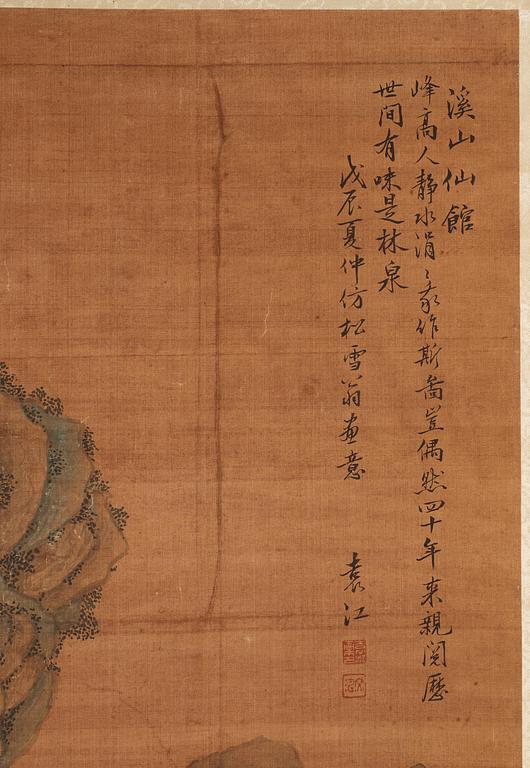 溪山仙館
峰高人靜水涓〻我作斯啚豈偶然四十年来親閱歷
世間有味是林泉
戊辰夏仲仿松雪翁畫意
袁江